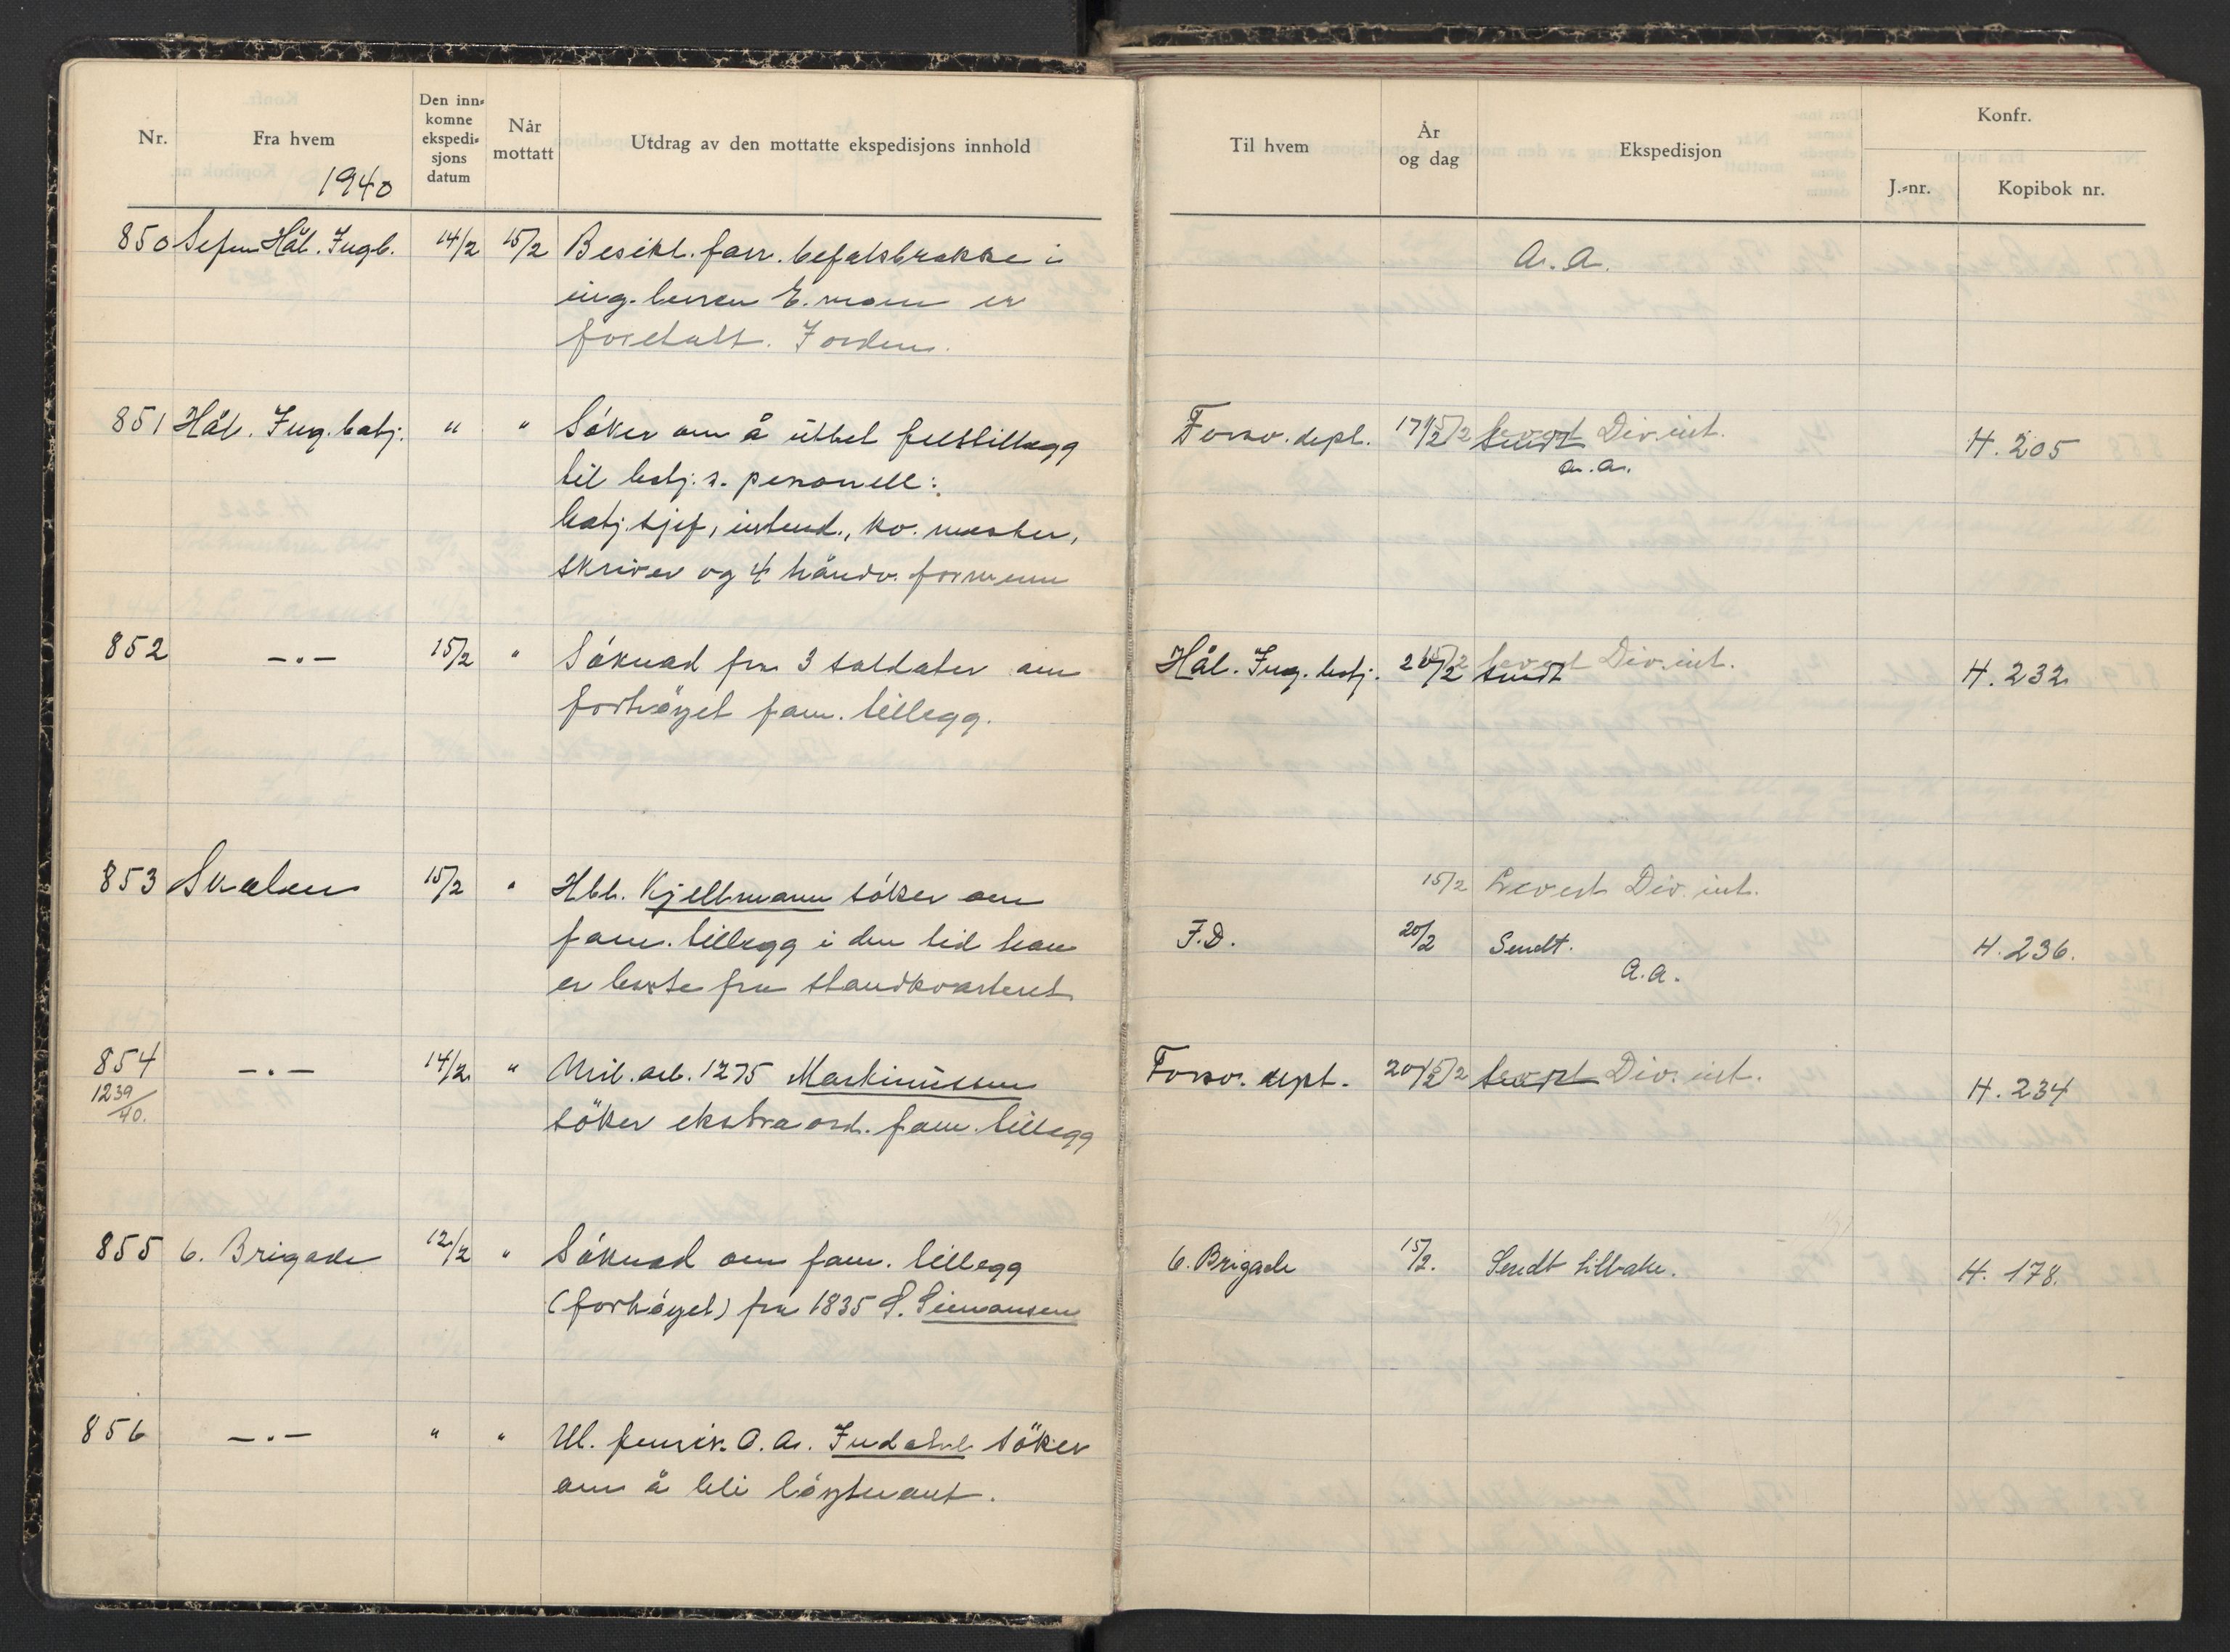 Nr.
Fra hvem
1940
Den inn-
komne
ekspedi-
sjons
datum
Når
mottatt
Utdrag av den mottatte ekspedisjons innhold
850 Sjefen Hål. Ingb. 14/2 15/2 Besikt. forr. befalsbrakke i
ing. leiren E.moen er
foretatt. I orden.
851 Hål. Ing. batj. " " Söker om å uttbet felttillegg
til batj.s. personell:
batj.sjef, intend., kv. mester,
skriver og 4 håndv. formenn
852 —.— 15/2 " Söknad fra 3 soldater om
forhöyet fam. tillegg.
853 Skalen 15/2 " Hbt. Kjellmann söker om
fam. tillegg i den tid han
er borte fra standkvarteret
854 —.— 14/2 " Mil. arb. 1275 Martinussen
1239/40. söker ekstraord. fam. tillegg
855 6. Brigade 12/2 " Söknad om fam. tillegg
(forhöyet) fra 1835 S. Simonsen
856 —.— " " Ul. fenrik O. A. Indahl söker
om å bli löytnant.
Til hvem
År
og dag
Ekspedisjon
Konfr.
J.-nr.
Kopibok nr.
A. A.
Forsv. dept. 17/2 15/2 Sendt Div. int. H. 205
a. a.
Hål. Ing. batj. 15/2 Levert Div. int. H. 232
Sendt
15/2 Levert Div. int.
F.D. 20/2 Sendt. H. 236.
A. A.
Forsv. dept. 20/2 15/2 Levert Div. int. H. 234
6. Brigade 15/2. Sendt tilbake. H. 178.